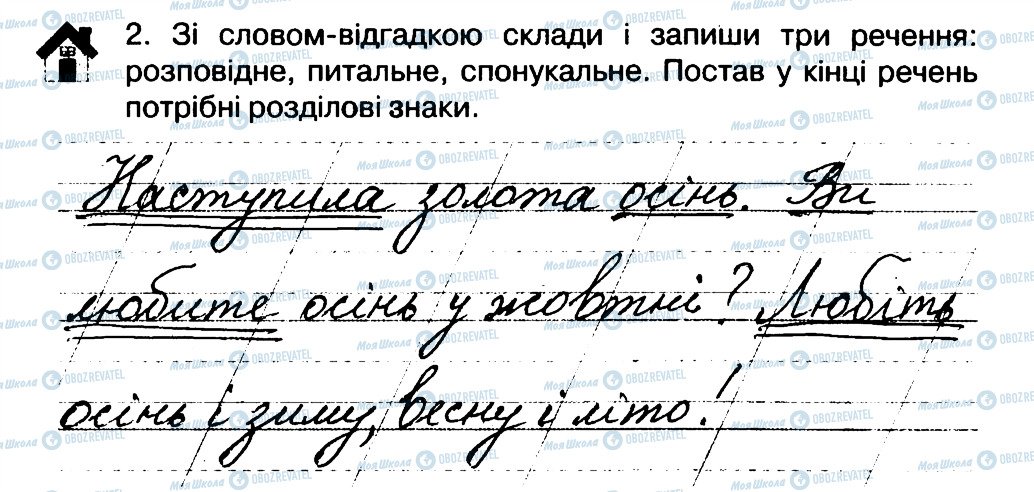 2. Зі словом-відгадкою склади і запиши три речення:
розповідне, питальне, спонукальне. Постав у кінці речень
потрібні розділові знаки.
Наступила золота осінь. Ви
любите осінь у жовтні? Любіть
осінь і зиму, весну і літо!